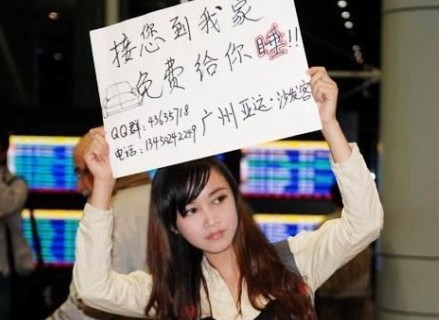 接您到我家
免费给你睡!!
QQ群:43635718
电话:13450242249
广州亚运·沙发客